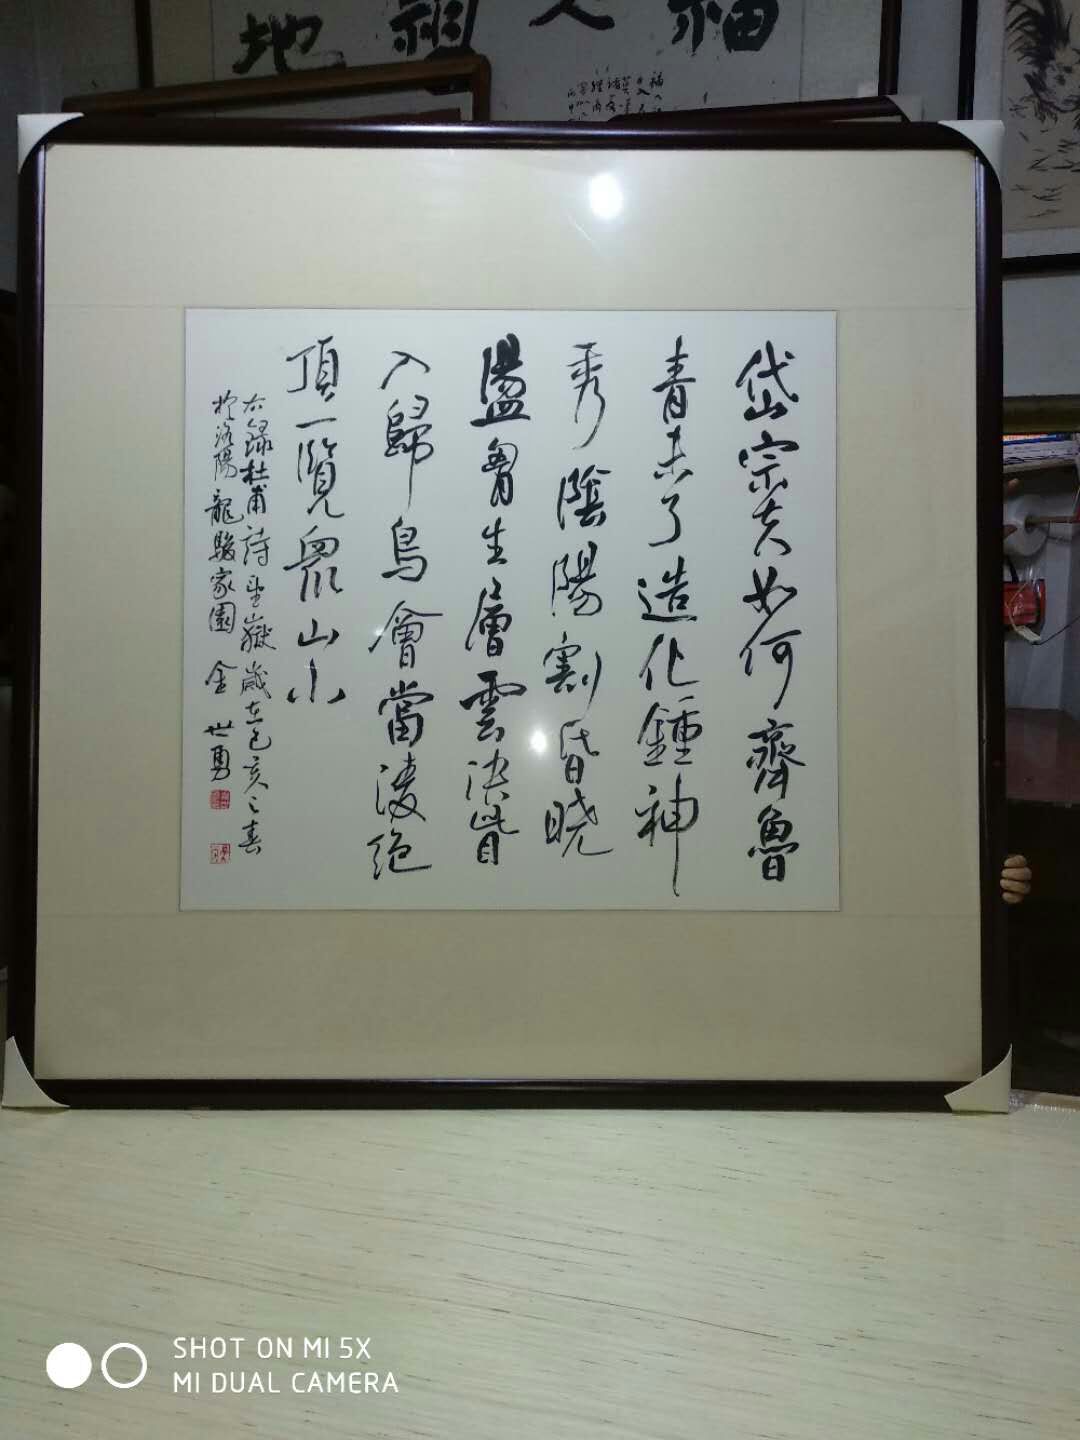 福人福地
岱宗夫如何齊魯
青未了造化鍾神
秀陰陽割昏曉
盪胷生層雲決眥
入歸鳥會當凌絕
頂一覽眾山小
右錄杜甫詩望嶽歲在己亥之春
於洛陽龍駿家園 金世勇
SHOT ON MI 5X
MI DUAL CAMERA